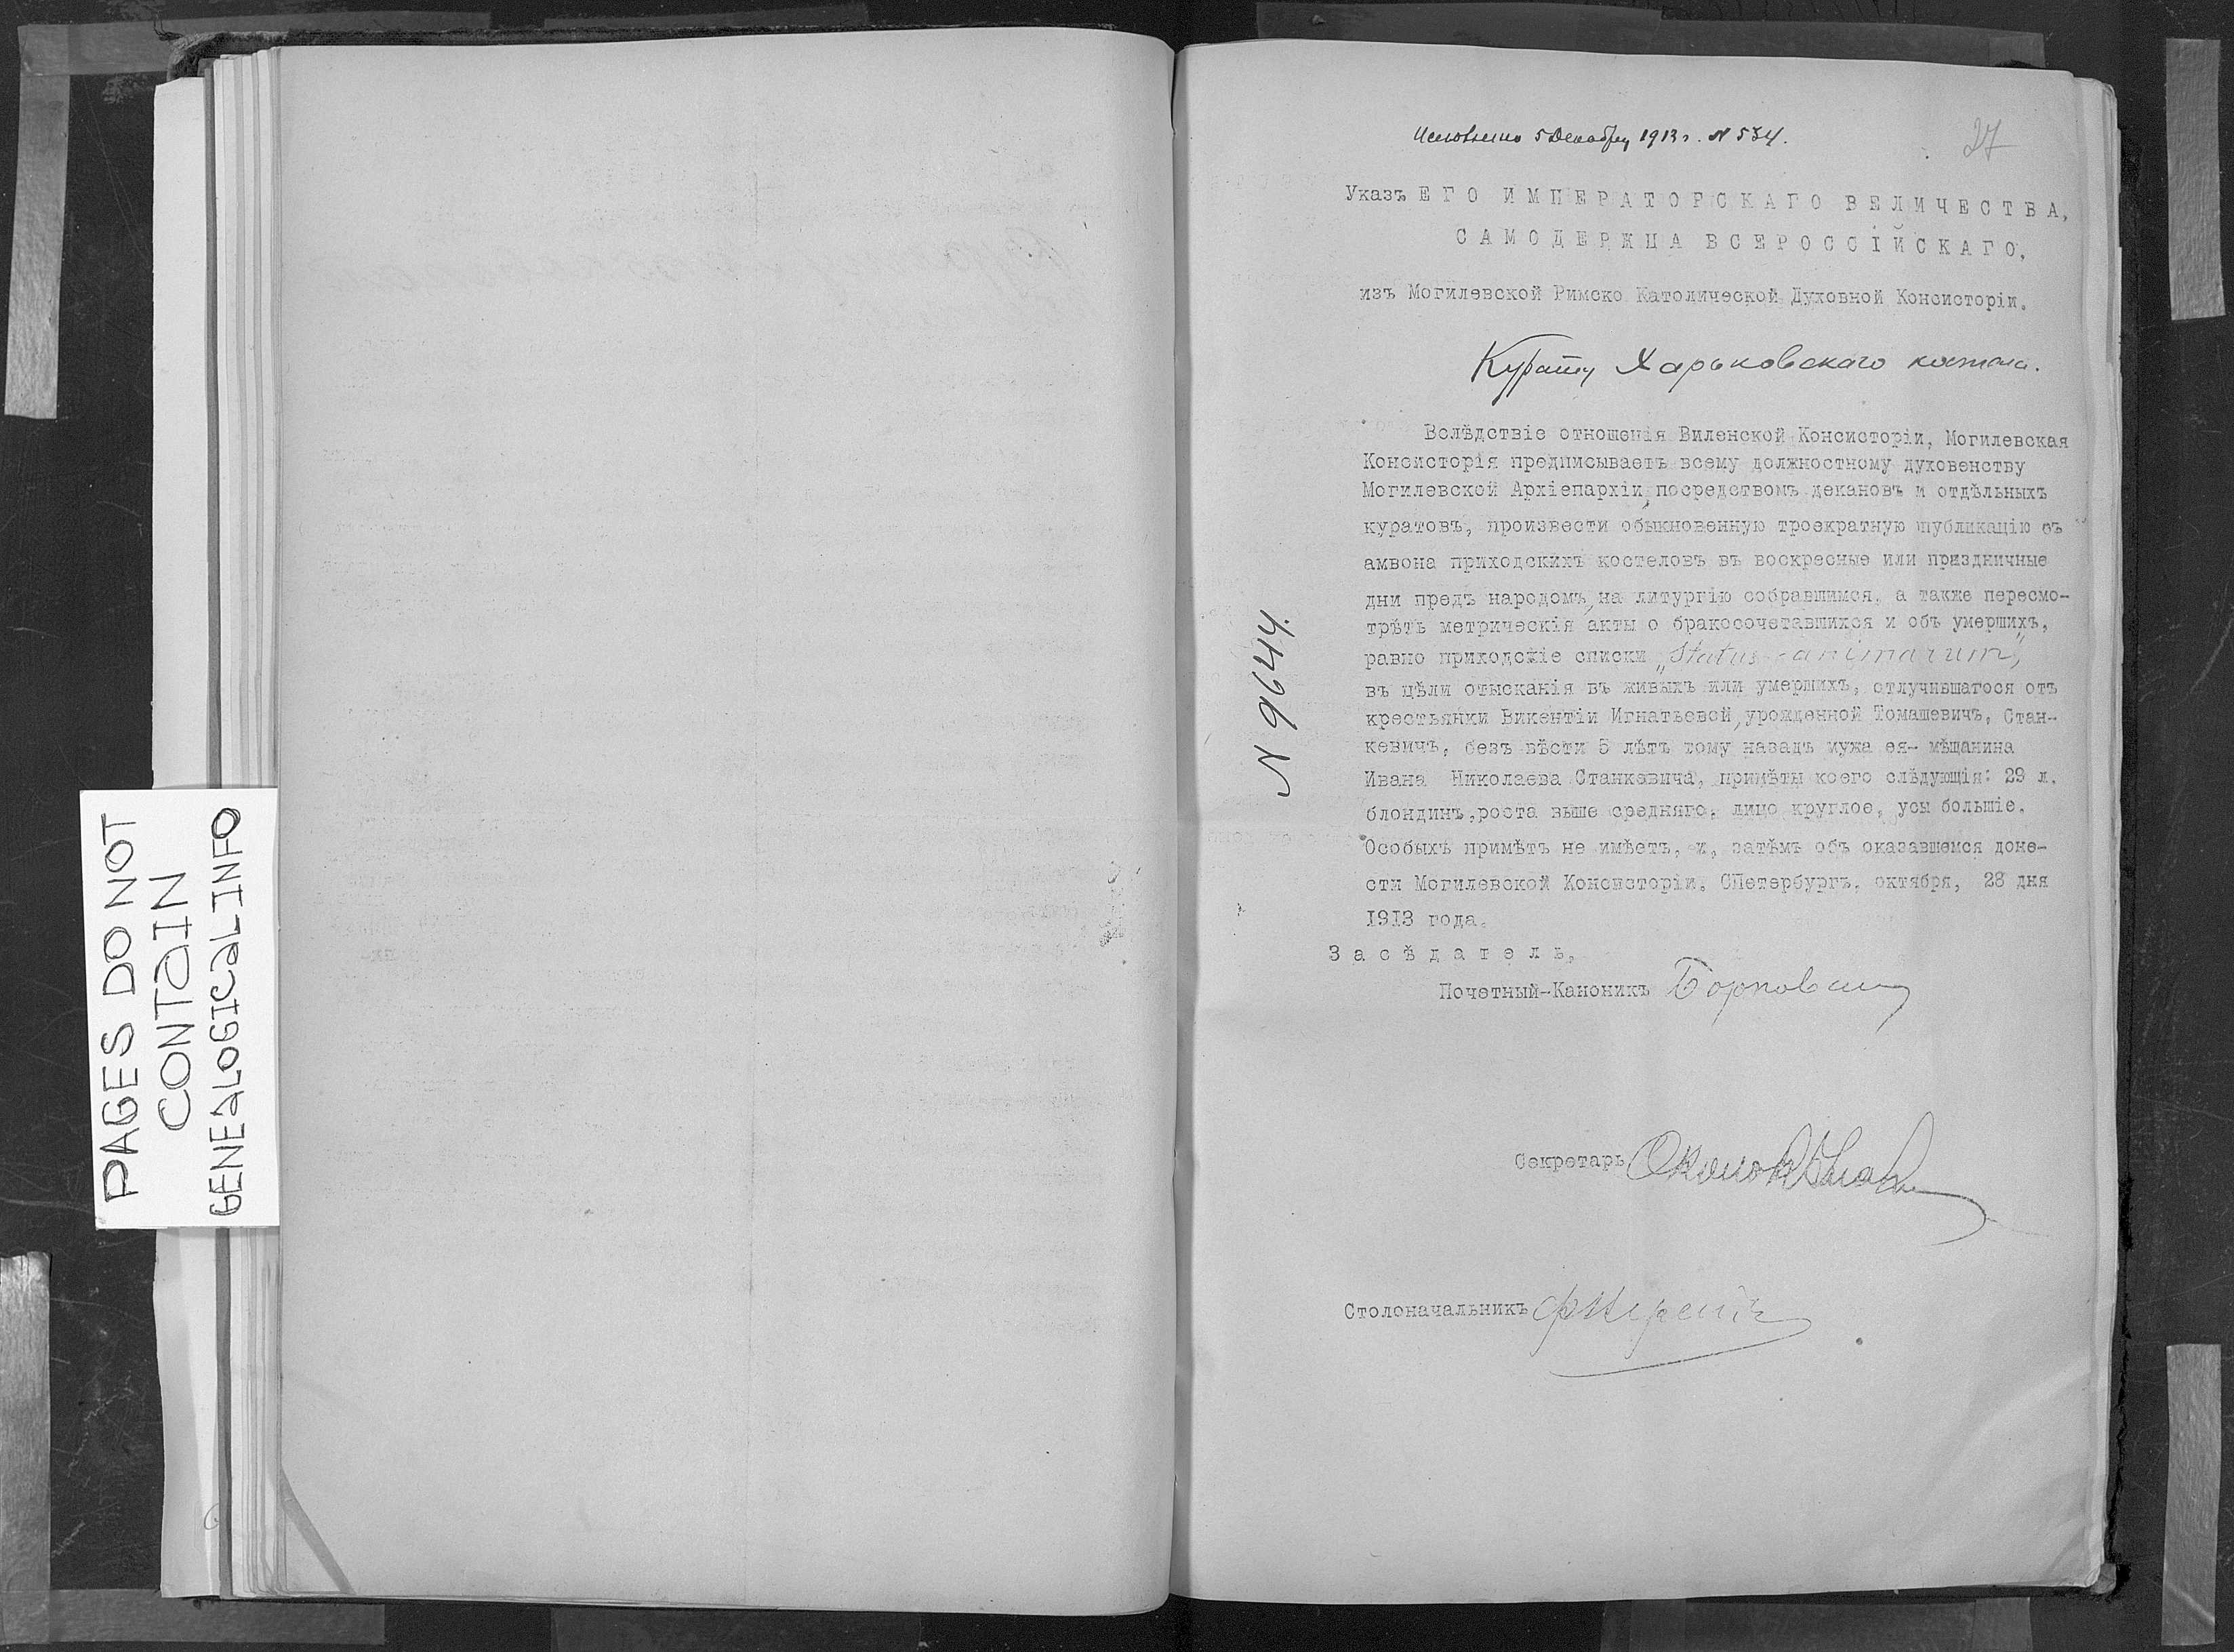 PAGES DO NOT
CONTAIN
GENEALOGICAL INFO
Исполнено 5 Декабря 1913 г. № 534.
27
Указъ ЕГО ИМПЕРАТОРСКАГО ВЕЛИЧЕСТВА,
САМОДЕРЖЦА ВСЕРОССІЙСКАГО,
изъ Могилевской Римско Католической Духовной Консисторіи.
Курату Харьковскаго костела.
№ 9644.
Вслѣдствіе отношенія Виленской Консисторіи, Могилевская
Консисторія предписываетъ всему должностному духовенству
Могилевской Архіепархіи, посредствомъ декановъ и отдѣльныхъ
куратовъ, произвести обыкновенную троекратную публикацію съ
амвона приходскихъ костеловъ въ воскресные или праздничные
дни предъ народомъ, на литургію собравшимся, а также пересмо-
трѣть метрическія акты о бракосочетавшихся и объ умершихъ,
равно приходскіе списки „Status animarum",
въ цѣли отысканія въ живыхъ или умершихъ, отлучившагося отъ
крестьянки Викентіи Игнатьевой, урожденной Томашевичъ, Стан-
кевичъ, безъ вѣсти 5 лѣтъ тому назадъ мужа ея- мѣщанина
Ивана Николаева Станкевича, примѣты коего слѣдующія: 29 л.
блондинъ, роста выше средняго, лицо круглое, усы большіе.
Особыхъ примѣтъ не имѣетъ, и, затѣмъ объ оказавшемся доне-
сти Могилевской Консисторіи. СПетербургъ, октября, 28 дня
1913 года.
Засѣдатель,
Почетный-Каноникъ
Секретарь
Столоначальникъ